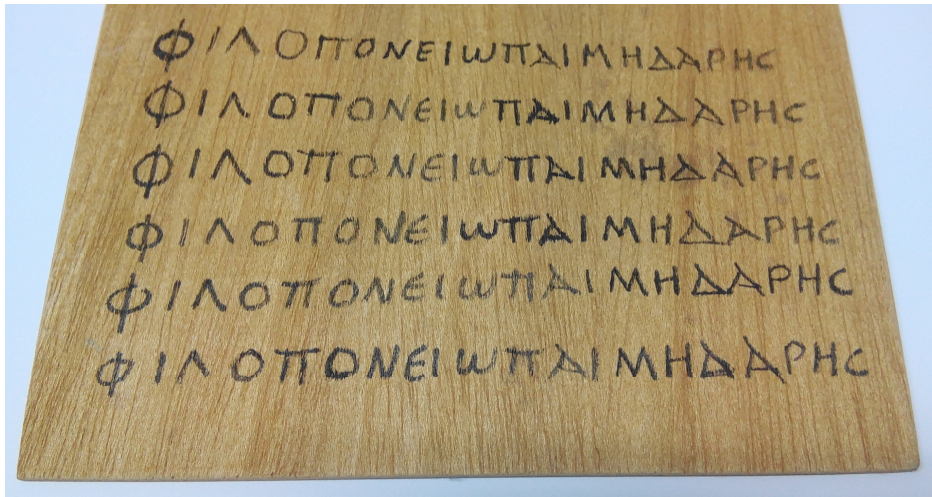 ΦΙΛΟΠΟΝΕΙωΠΑΙΜΗΔΑΡΗϹ
ΦΙΛΟΠΟΝΕΙωΠΑΙΜΗΔΑΡΗϹ
ΦΙΛΟΠΟΝΕΙωΠΑΙΜΗΔΑΡΗϹ
ΦΙΛΟΠΟΝΕΙωΠΑΙΜΗΔΑΡΗϹ
ΦΙΛΟΠΟΝΕΙωΠΑΙΜΗΔΑΡΗϹ
ΦΙΛΟΠΟΝΕΙωΠΑΙΜΗΔΑΡΗϹ